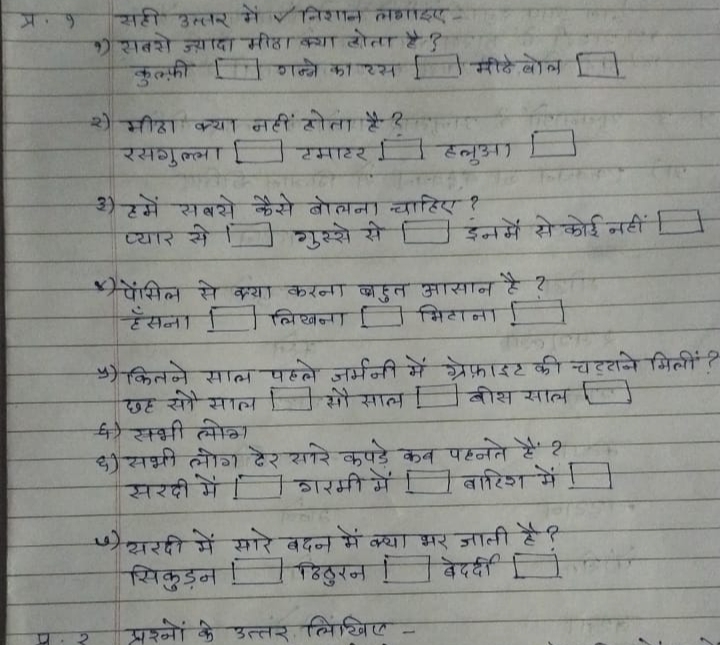 प्र. १ सही उत्तर में ✓ निशान लगाइए -
१) सबसे ज्यादा मीठा क्या होता है?
कुल्फ़ी गन्ने का रस मीठे बोल
२) मीठा क्या नहीं होता है?
रसगुल्ला टमाटर हलुआ
३) हमें सबसे कैसे बोलना चाहिए?
प्यार से गुस्से से इनमें से कोई नहीं
४) पेंसिल से क्या करना बहुत आसान है?
हँसना लिखना मिटाना
५) कितने साल पहले जर्मनी में ग्रेफ़ाइट की चट्टाने मिलीं?
छह सौ साल सौ साल बीस साल
६) सभी लोग
६) सभी लोग ढेर सारे कपड़े कब पहनते हैं?
सरदी में गरमी में बारिश में
७) सरदी में सारे बदन में क्या भर जाती है?
सिकुड़न ठिठुरन बेदर्दी
प्र. २ प्रश्नों के उत्तर लिखिए -